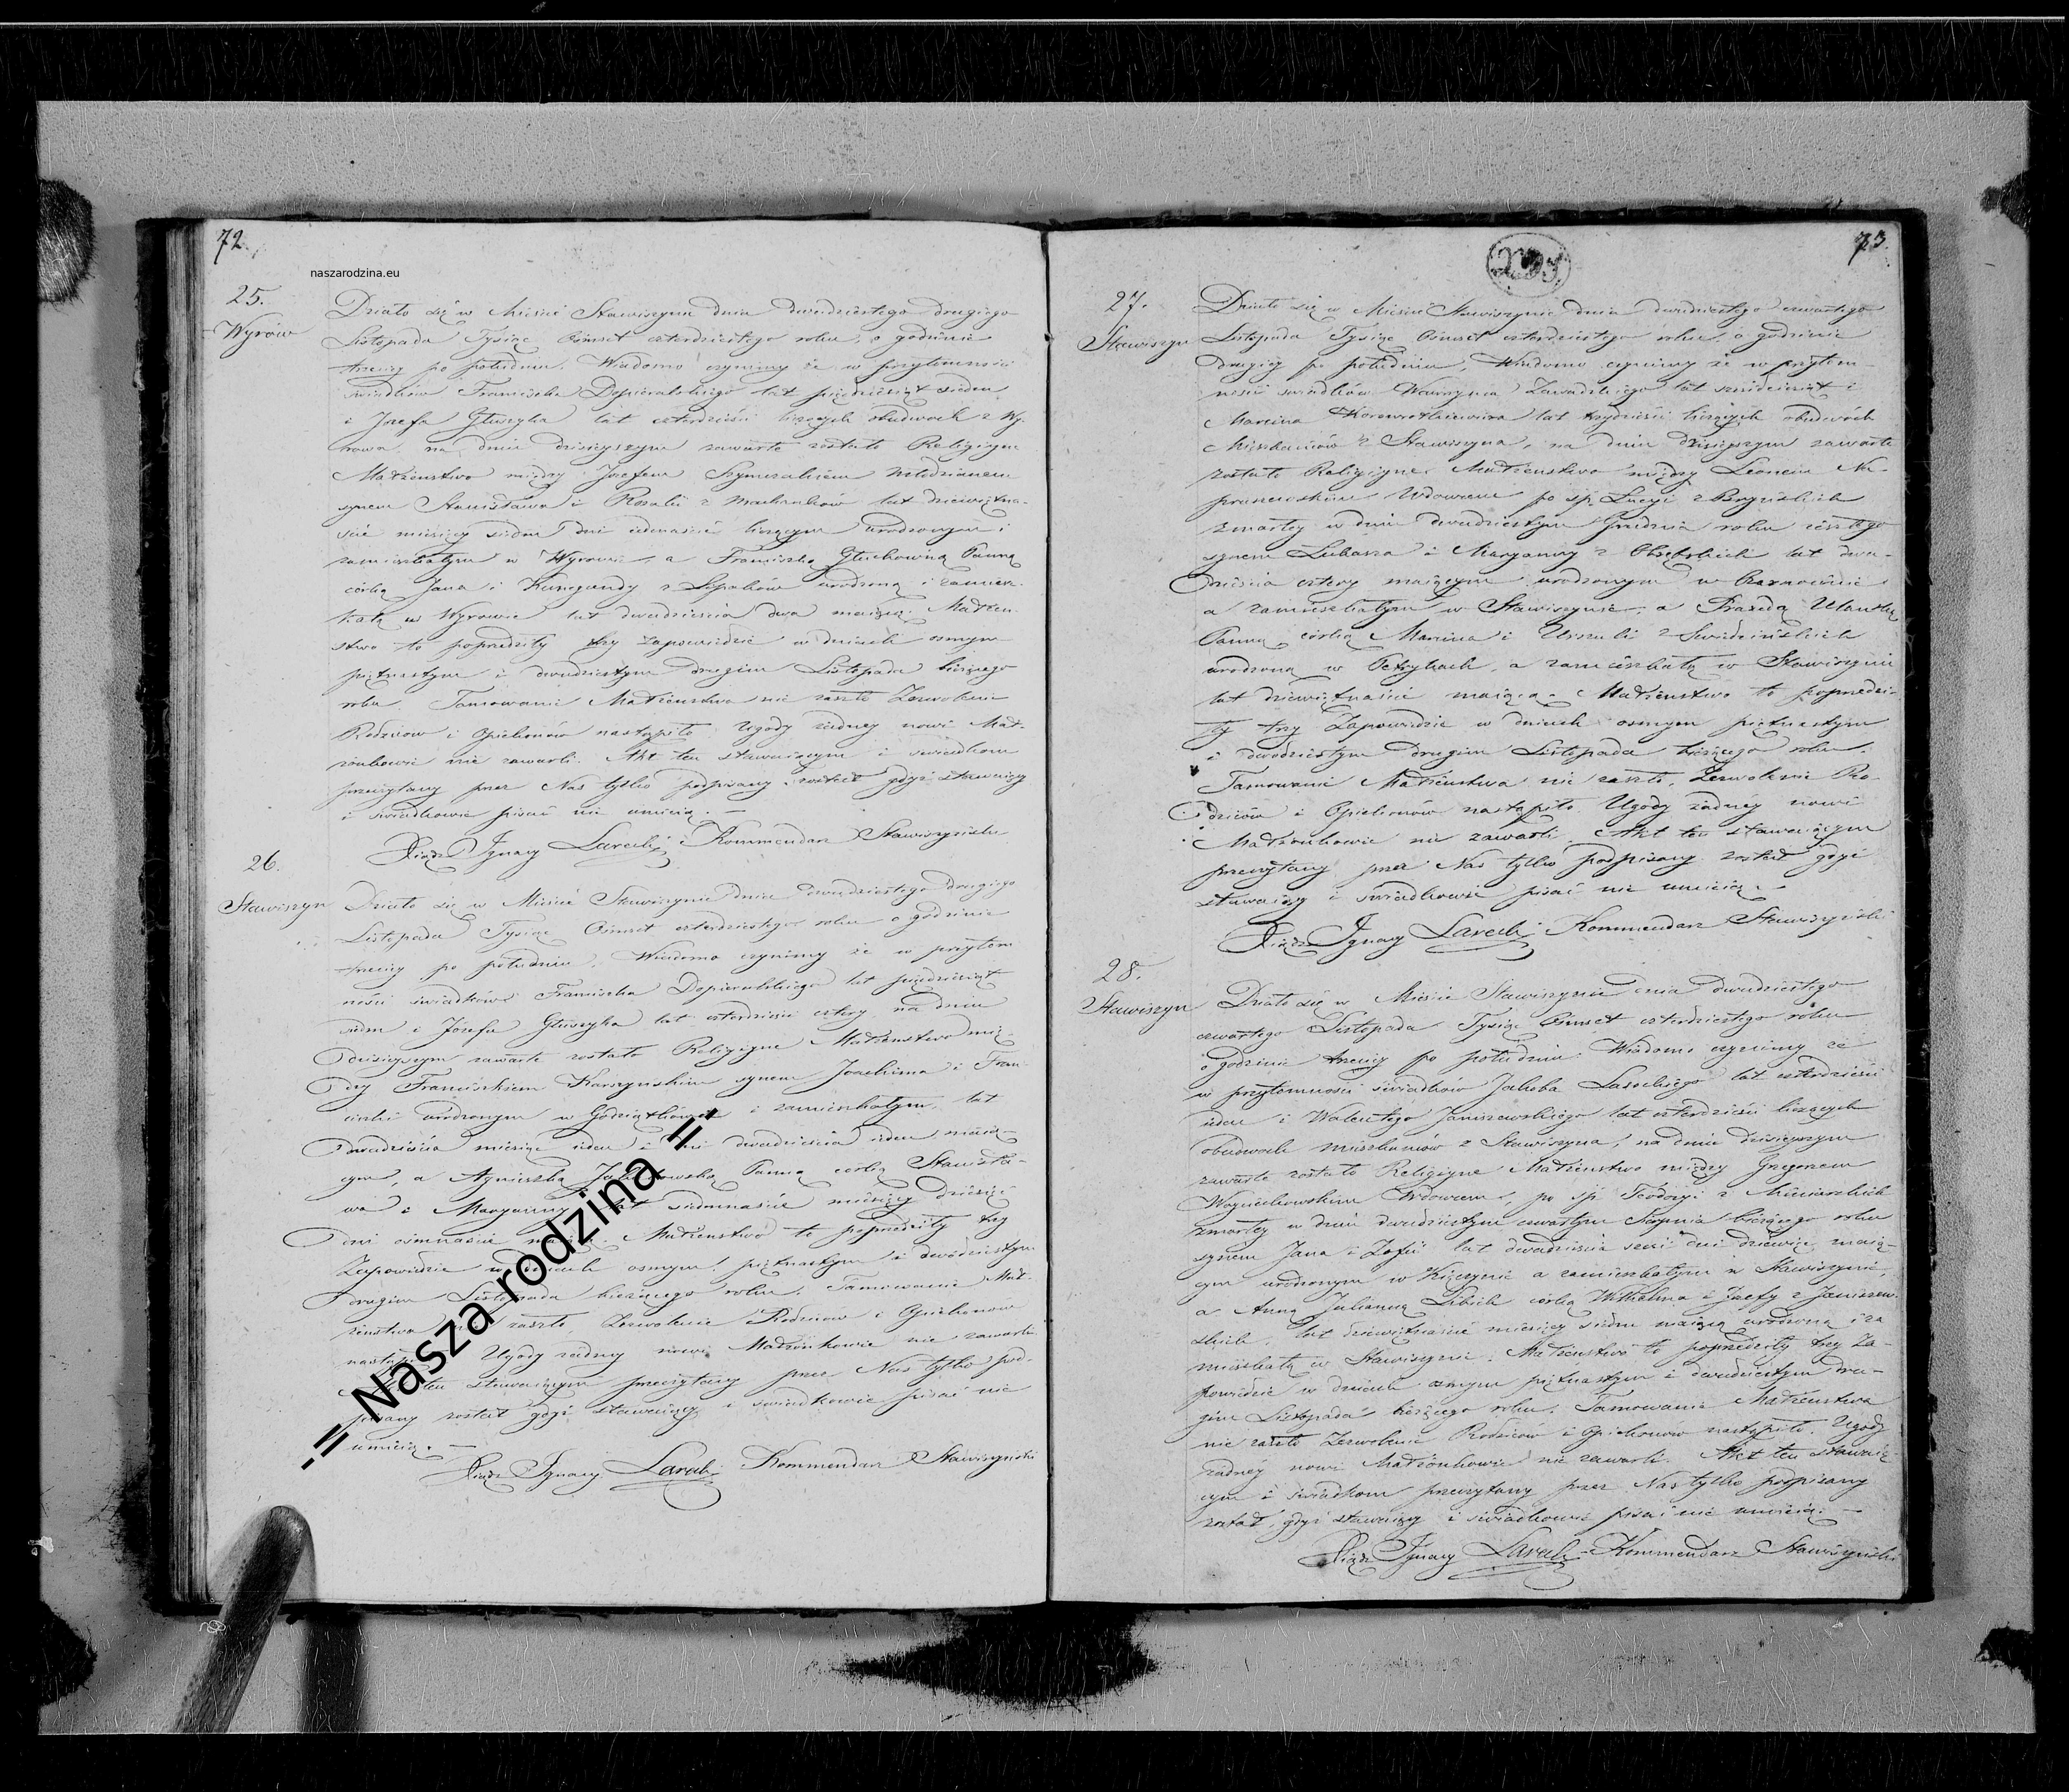 72.
naszarodzina.eu
25.
Wyrów
Działo się w Mieście Stawiszynie dnia dwudziestego drugiego
Listopada Tysiąc Ośmset czterdziestego roku, o godzinie
trzeciej po południu. Wiadomo czynimy że w przytomności
świadków Franciszka Dopieralskiego lat pięćdziesiąt siedm
i Jozefa Głuszyka lat czterdzieści liczących obudwoch z Wy-
rowa, na dniu dzisiejszym zawarte zostało Religijne
Małżeństwo między Jozefem Szymczakiem Młodzianem
synem Stanisława i Rozalii z lat dziewiętna-
ście miesięcy siedm dni liczącym urodzonym i
zamieszkałym w Wyrowie, a Franciszką Głuchowną Panną
córką Jana i Kunegundy z urodzoną i zamiesz-
kałą w Wyrowie lat dwadzieścia dwa mającą. Małżeń-
stwo to poprzedziły trzy zapowiedzie w dniach osmym
piętnastym i dwudziestym drugim Listopada bieżącego
roku. Tamowanie Małżeństwa nie zaszło Zezwolenie
Rodziców i Opiekunów nastąpiło. Ugody żadney nowi Mał-
żonkowie nie zawarli. Akt ten stawaiącym i świadkom
przeczytany przez Nas tylko podpisany został gdyż stawaiący
i świadkowie pisać nie umieią. —
Xiądz Ignacy Kommendarz Stawiszyński
26.
Stawiszyn
Działo się w Mieście Stawiszynie dnia dwudziestego drugiego
Listopada Tysiąc Ośmset czterdziestego roku o godzinie
trzeciej po południu. Wiadomo czynimy że w przytom
ności świadków Franciszka Dopieralskiego lat pięćdziesiąt
siedm i Józefa Głuszyka lat czterdzieści cztery, na dniu
dzisiejszym zawarte zostało Religijne Małżeństwo mię-
dzy Franciszkiem Karszynskim synem Joachima i Fran-
ciszki urodzonym w i zamieszkałym, lat
dwadzieścia miesięc ieden i dni dwadzieścia ieden maią-
cym, a Agnieszką Panną córką Stanisła-
wa i Maryanny lat siedmnaście miesięcy dziesięć
dni osmnaście maiącą. Małżeństwo to poprzedziły trzy
Zapowiedzie w dniach osmym, piętnastym i dwudziestym
drugim Listopada bieżącego roku. Tamowanie Mał-
żeństwa nie zaszło, Zezwolenie Rodziców i Opiekunów
nastąpiło Ugody żadney nowi Małżonkowie nie zawarli
Akt ten stawaiącym przeczytany przez Nas tylko pod-
pisany został gdyż stawaiący i świadkowie pisać nie
umieią. —
Xiądz Ignacy Kommendarz Stawiszyński
-= Nasza rodzina =-
73.
27.
Stawiszyn
Działo się w Mieście Stawiszynie dnia dwudziestego czwartego
Listopada Tysiąc Ośmset czterdziestego roku, o godzinie
drugiej po południu, Wiadomo czynimy że w przytom-
ności świadków Wawrzyna Zawadzkiego lat sześćdziesiąt i
Marcina lat trzydzieści liczących obudwóch
Mieszkańców z Stawiszyna, na dniu dzisiejszym zawarte
zostało Religijne Małżeństwo między Leonem Na-
Wdowcem po śp. Łucyi z
zmarłey w dniu dwudziestym Grudnia roku zeszłego
synem Łukasza i Maryanny z lat dwa-
dzieścia cztery maiącym urodzonym w
a zamieszkałym w Stawiszynie, a Praxedą
Panną córką Marcina i Urszuli z
urodzoną w Petrykach, a zamieszkałą w Stawiszynie
lat dziewiętnaście maiącą. Małżeństwo to poprzedzi-
ły trzy Zapowiedzie w dniach osmym piętnastym
i dwudziestym drugim Listopada bieżącego roku.
Tamowanie Małżeństwa nie zaszło, Zezwolenie Ro-
dziców i Opiekunów nastąpiło. Ugody żadney nowi
Małżonkowie nie zawarli. Akt ten stawaiącym
przeczytany przez Nas tylko podpisany został gdyż
stawaiący i świadkowie pisać nie umieią. —
Xiądz Ignacy Kommendarz Stawiszyński
28.
Stawiszyn
Działo się w Mieście Stawiszynie dnia dwudziestego
czwartego Listopada Tysiąc Ośmset czterdziestego roku
o godzinie trzeciej po południu. Wiadomo czynimy że
w przytomności świadków Jakóba Lasockiego lat czterdzieści
ieden i Walentego Janiszewskiego lat czterdzieści liczących
obudwoch mieszkańców z Stawiszyna, na dniu dzisiejszym
zawarte zostało Religijne Małżeństwo między Grzegorzem
Woyciechowskim Wdowcem, po śp. Teodozyi z
zmarłey w dniu dwudziestym czwartym Sierpnia bieżącego roku
synem Jana i Zofii lat dwadzieścia sześć dni dziewięć maią-
cym urodzonym w a zamieszkałym w Stawiszynie,
a Anną Julianną córką Wilhelma i Józefy z Janiszew-
skich, lat dziewiętnaście miesięcy siedm maiącą urodzoną i za
mieszkałą w Stawiszynie. Małżeństwo to poprzedziły trzy Za-
powiedzie w dniach osmym piętnastym i dwudziestym dru-
gim Listopada bieżącego roku. Tamowanie Małżeństwa
nie zaszło Zezwolenie Rodziców i Opiekunów nastąpiło. Ugody
żadney nowi Małżonkowie nie zawarli. Akt ten stawaią-
cym i świadkom przeczytany przez Nas tylko podpisany
został, gdyż stawaiący i świadkowie pisać nie umieią. —
Xiądz Ignacy Kommendarz Stawiszyński